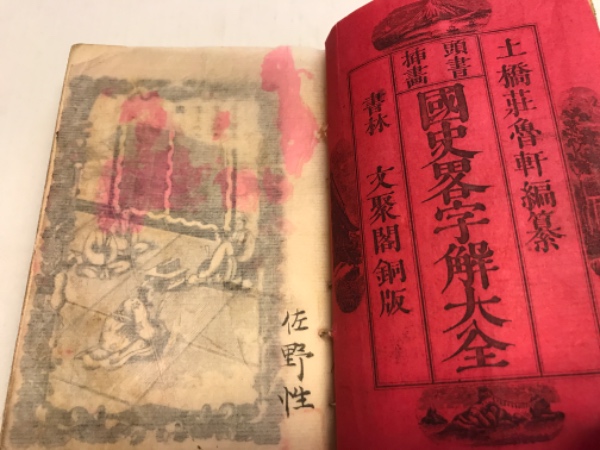 土橋莊魯軒編纂
頭書
挿畫
國史畧字解大全
書林 文聚閣銅版
佐野性